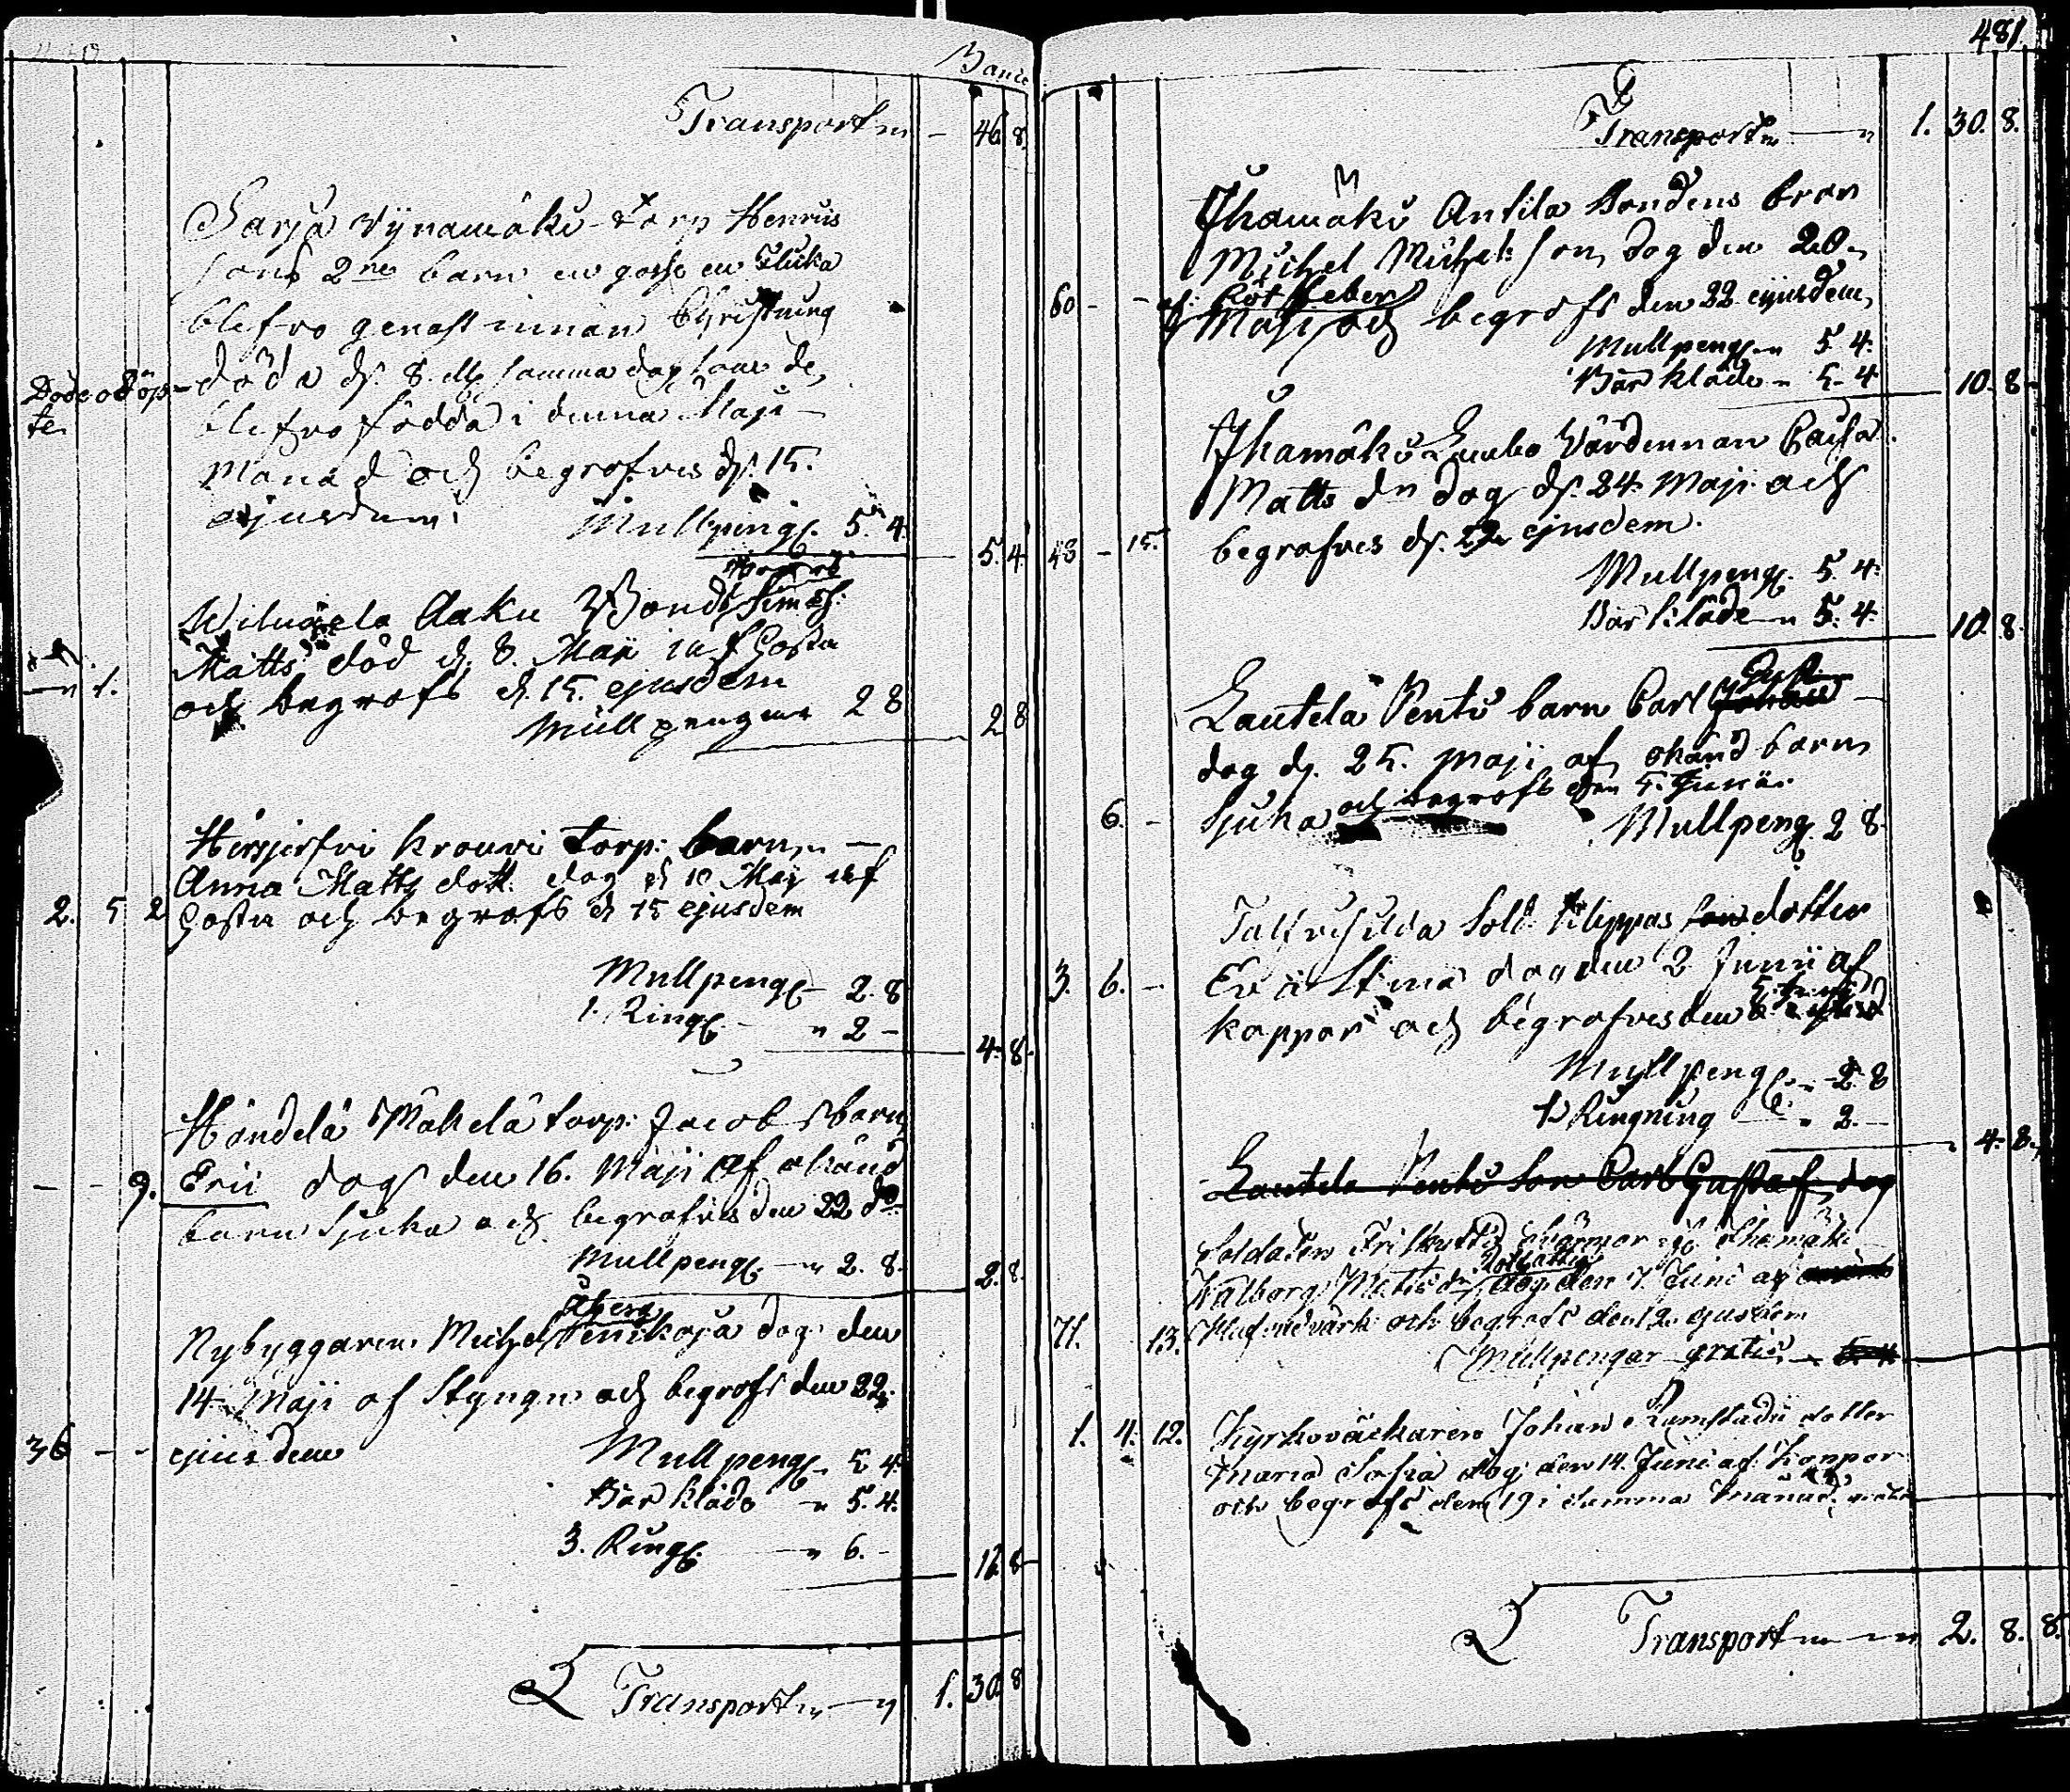 Banco
Transport 46 8
Sarja Vÿnamäki Torp Henrics
sons 2ne barn en gosse en flicka
blefvo genast innan Christning
Döde odöp- döda d. 8. samma dag som de
te. blefvo födda i denna Maji
Månad och begrofves d. 15.
ejusdem. Mullpeng. 5. 4.
5. 4.
Aaku Bond. Sim.
Matts död d. 8. Maji af Hosta
1. och begrofs d. 15. ejusdem
Mullpengar 2 8
2 8
Krouvi torp: barn
Anna Matts dott. dog d 10 Maji af
2. 5 2 Hosta och begrofs d 15 ejusdem
Mullpeng. 2. 8
1. Ring. " 2 -
4. 8.
Händelä Mäkelä torp: Jacobs barn
Eric dog den 16. Maji af okänd
- - 9. barn Sjuka och begrofves den 22 do
Mullpeng. 2. 8.
2. 8.
Åberg
Nybyggaren Michel Penikoja dog den
14. Maji af Styngn och begrofs den 22.
36 - - ejusdem
Mullpeng. 5 4.
Bår kläde " 5. 4.
3. Ring. " 6. -
16 8
Transport 1. 30 8
481
Transport 1. 30. 8.
Ihamäki Antila Bondens bror
Michel Michels son dog den 20
60 - - af Röt feber
Maji och begrofs den 22 ejusdem,
Mullpeng. 5 4.
Bår kläde 5. 4
10. 8
Ihamäki Laubo Värdinnan Caisa
Matts dr dog d. 24 Maji och
48 - 15. begrofves d. 29 ejusdem.
Mullpeng. 5. 4.
Bår kläde 5. 4.
10. 8.
Gust.
Lautela Pentti barn Carl Johan
dog d. 25. Maji af okänd barn
6. - Sjuka och begrofs den 5. Junii.
Mullpeng. 2 8
Sold. Filippus son dotter
3. 6. - Eva Stina dog den 2 Junii af
koppor och begrofves den
Mullpeng. 2. 8
1 Ringning " 2. -
4. 8.
Lautela Pentti Son Carl Gustaf dog
Soldaten svärmor Ihamäki
Rotfattig
Walborg Matts dr dog den 7. Junii af
71. 13. Hufvudvärk och begrofs den 12. ejusdem
Mullpengar gratis
1. 4. 12. Kyrkoväckaren Johan Ramstadii dotter
Maria Sofia dog den 14. Junii af Koppor
och begrofs den 19 i samma Månad. gratis
Transport 2. 8. 8.